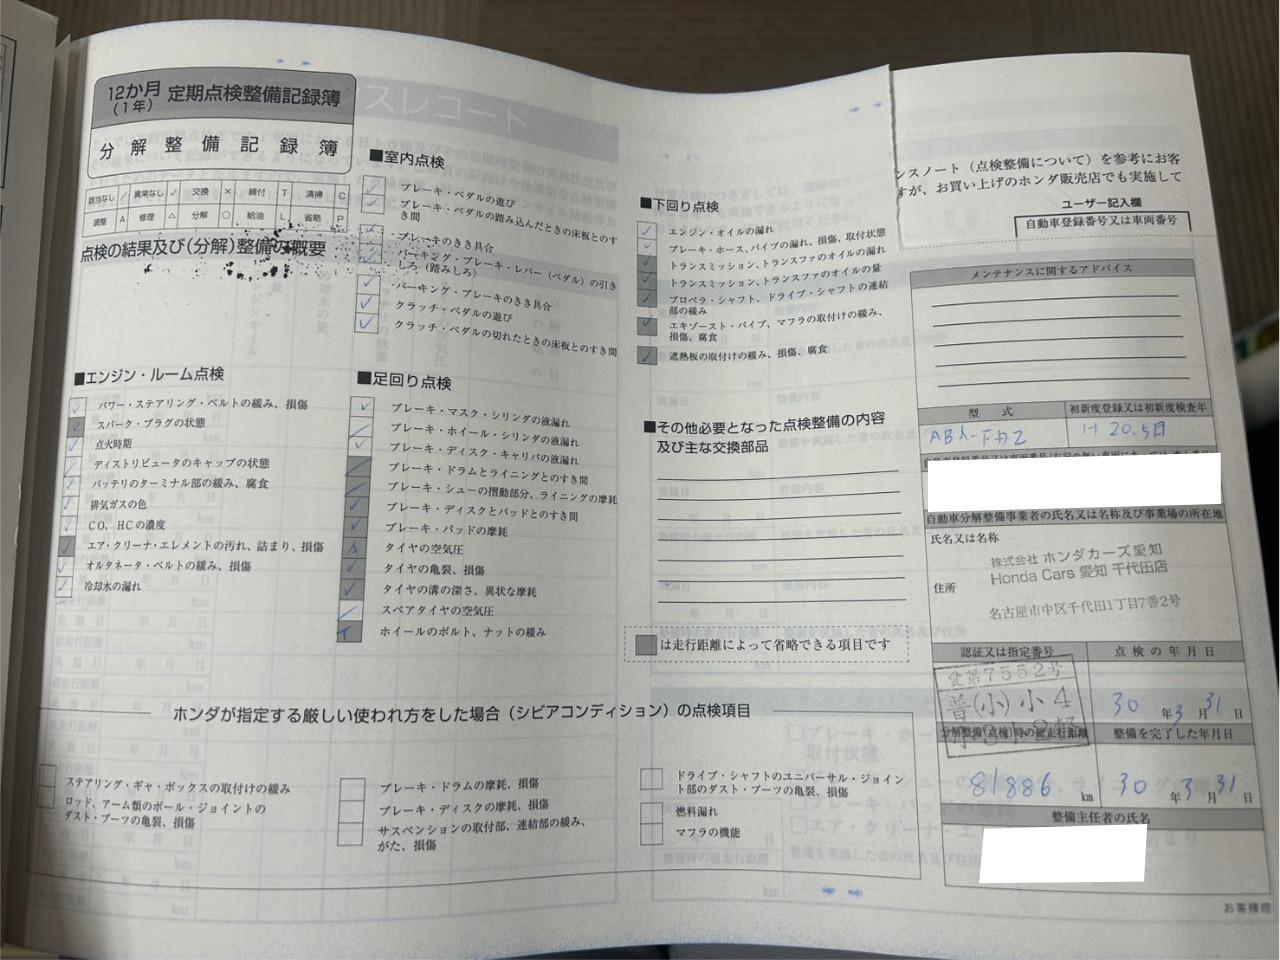 12か月
(1年)
定期点検整備記録簿
分解整備記録簿
該当なし / 異常なし ✓ 交換 × 締付 T 清掃 C
調整 A 修理 △ 分解 ○ 給油 L 省略 P
点検の結果及び(分解)整備の概要
■エンジン・ルーム点検
パワー・ステアリング・ベルトの緩み、損傷
スパーク・プラグの状態
点火時期
ディストリビュータのキャップの状態
バッテリのターミナル部の緩み、腐食
排気ガスの色
CO、HCの濃度
エア・クリーナ・エレメントの汚れ、詰まり、損傷
オルタネータ・ベルトの緩み、損傷
冷却水の漏れ
■室内点検
ブレーキ・ペダルの遊び
ブレーキ・ペダルの踏み込んだときの床板とのす
き間
ブレーキのきき具合
パーキング・ブレーキ・レバー(ペダル)の引き
しろ(踏みしろ)
パーキング・ブレーキのきき具合
クラッチ・ペダルの遊び
クラッチ・ペダルの切れたときの床板とのすき間
■足回り点検
ブレーキ・マスタ・シリンダの液漏れ
ブレーキ・ホイール・シリンダの液漏れ
ブレーキ・ディスク・キャリパの液漏れ
ブレーキ・ドラムとライニングとのすき間
ブレーキ・シューの摺動部分、ライニングの摩耗
ブレーキ・ディスクとパッドとのすき間
ブレーキ・パッドの摩耗
タイヤの空気圧
タイヤの亀裂、損傷
タイヤの溝の深さ、異状な摩耗
スペアタイヤの空気圧
ホイールのボルト、ナットの緩み
■下回り点検
エンジン・オイルの漏れ
ブレーキ・ホース、パイプの漏れ、損傷、取付状態
トランスミッション、トランスファのオイルの漏れ
トランスミッション、トランスファのオイルの量
プロペラ・シャフト、ドライブ・シャフトの連結
部の緩み
エキゾースト・パイプ、マフラの取付けの緩み、
損傷、腐食
遮熱板の取付けの緩み、損傷、腐食
■その他必要となった点検整備の内容
及び主な交換部品
は走行距離によって省略できる項目です
ホンダが指定する厳しい使われ方をした場合(シビアコンディション)の点検項目
ステアリング・ギヤ・ボックスの取付けの緩み
ロッド、アーム類のボール・ジョイントの
ダスト・ブーツの亀裂、損傷
ブレーキ・ドラムの摩耗、損傷
ブレーキ・ディスクの摩耗、損傷
サスペンションの取付部、連結部の緩み、
がた、損傷
ドライブ・シャフトのユニバーサル・ジョイン
ト部のダスト・ブーツの亀裂、損傷
燃料漏れ
マフラの機能
ンスノート(点検整備について)を参考にお客
すが、お買い上げのホンダ販売店でも実施して
ユーザー記入欄
自動車登録番号又は車両番号
メンテナンスに関するアドバイス
型式 初新度登録又は初新度検査年
H 20.5月
自動車分解整備事業者の氏名又は名称及び事業場の所在地
氏名又は名称
株式会社 ホンダカーズ愛知
Honda Cars 愛知 千代田店
住所
名古屋市中区千代田1丁目7番2号
認証又は指定番号 点検の年月日
愛第7552号
普(小)小4
30年3月31日
分解整備(点検)時の総走行距離 整備を完了した年月日
81886 km 30年3月31日
整備主任者の氏名
お客様控